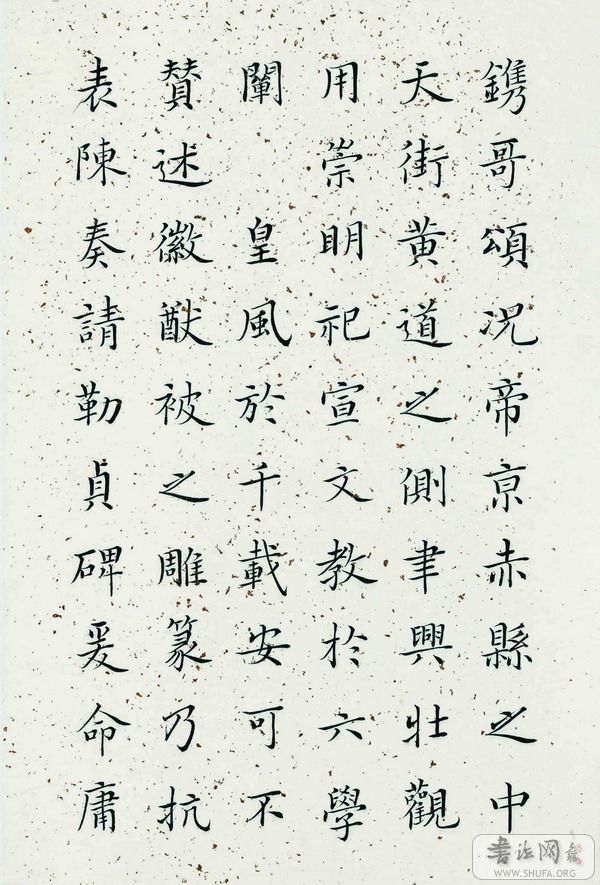 鐫哥頌況帝京赤縣之中
天街黃道之側聿興壯觀
用崇明祀宣文教於六學
闡皇風於千載安可不
贊述徽猷被之雕篆乃抗
表陳奏請勒貞碑爰命庸
書法网
WWW.SHUFA.ORG